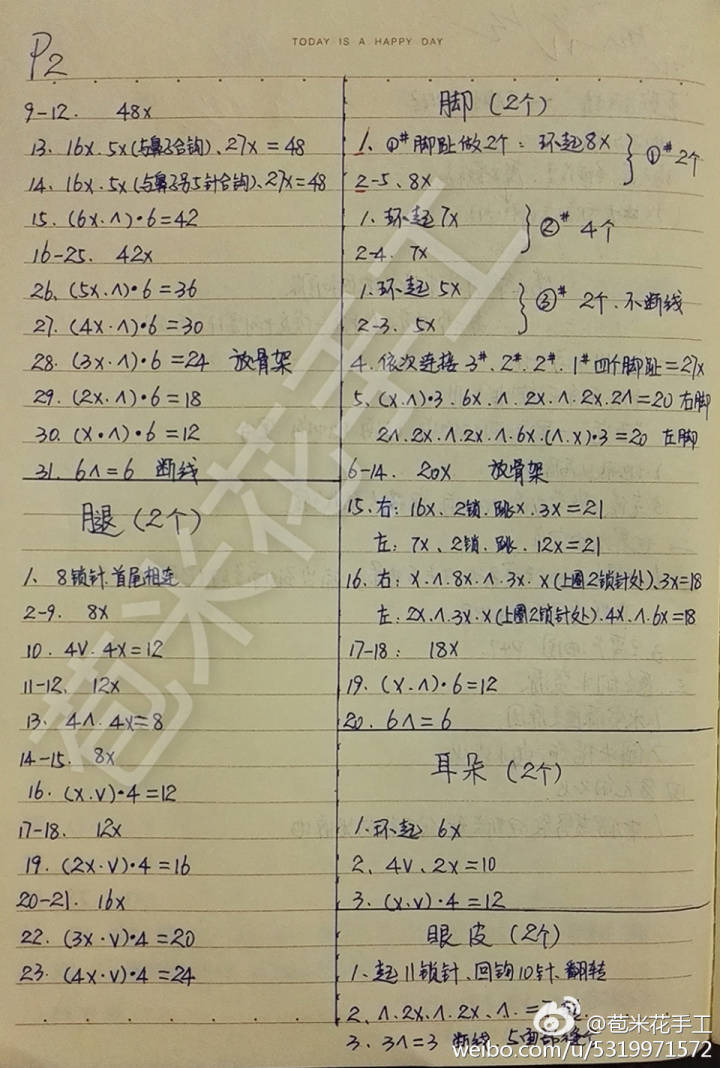 TODAY IS A HAPPY DAY
P2
9-12. 48x
13. 16x.5x(与鼻子合钩)、27x=48
14. 16x.5x(与鼻子另5针合钩)、27x=48
15. (6x.∧)•6=42
16-25. 42x
26. (5x.∧)•6=36
27. (4x.∧)•6=30
28. (3x.∧)•6=24 放骨架
29. (2x.∧)•6=18
30. (x.∧)•6=12
31. 6∧=6 断线
腿(2个)
1. 8锁针.首尾相连
2-9. 8x
10. 4V.4x=12
11-12. 12x
13. 4∧.4x=8
14-15. 8x
16. (x.v)•4=12
17-18. 12x
19. (2x.v)•4=16
20-21. 16x
22. (3x.v)•4=20
23. (4x.v)•4=24
脚(2个)
1. ①#脚趾做2个: 环起8x
2-5. 8x
①# 2个
1. 环起7x
2-4. 7x
②# 4个
1. 环起5x
2-3. 5x
③# 2个.不断线
4. 依次连接3#、2#、2#、1#四个脚趾=27x
5. (x.∧)•3.6x.∧.2x.∧.2x.2∧=20 右脚
2∧.2x.∧.2x.∧.6x.(∧.x)•3=20 左脚
6-14. 20x 放骨架
15. 右: 16x、2锁.跳x.3x=21
左: 7x、2锁.跳.12x=21
16. 右: x.∧.8x.∧.3x.x(上圈2锁针处)、3x=18
左: 2x.∧.3x.x(上圈2锁针处).4x.∧.6x=18
17-18: 18x
19. (x.∧)•6=12
20. 6∧=6
耳朵(2个)
1. 环起 6x
2. 4v、2x=10
3. (x.v)•4=12
眼皮(2个)
1. 起11锁针、回钩10针、翻转
2. ∧.2x.∧.2x.∧.=
3. 3∧=3 断线
荀米花手工
@荀米花手工
weibo.com/u/5319971572